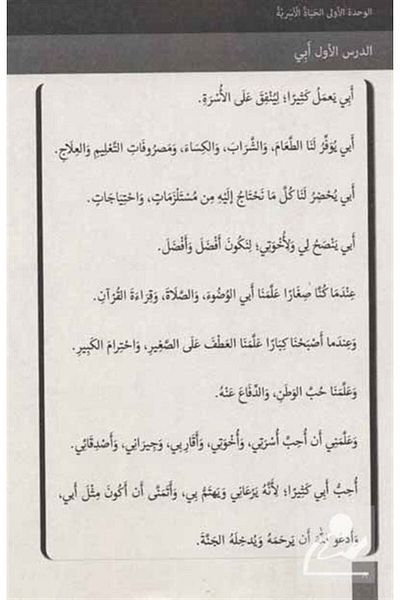 الوحدة الأولى الحَيَاةُ الْأُسَرِيَّةُ
الدرس الأول أَبِي
أَبِي يَعمَلُ كَثِيرًا؛ لِيُنْفِقَ عَلَى الأُسْرَةِ.
أَبي يُوَفِّرُ لَنَا الطَّعَامَ، وَالشَّرَابَ، وَالكِسَاءَ، وَمَصرُوفَاتِ التَّعْلِيمِ وَالعِلَاجِ.
أَبي يُحْضِرُ لَنَا كُلَّ مَا نَحْتَاجُ إِلَيْهِ مِن مُسْتَلْزَمَاتٍ، وَاحْتِيَاجَاتٍ.
أَبي يَنْصَحُ لِي وَلِأُخْوَتِي؛ لِنَكُونَ أَفْضَلَ وَأَفْضَلَ.
عِنْدَمَا كُنَّا صِغَارًا عَلَّمَنَا أَبي الوُضُوءَ، وَالصَّلَاةَ، وَقِرَاءَةَ القُرْآنِ.
وَعِندَما أَصْبَحْنَا كِبَارًا عَلَّمَنَا العَطْفَ عَلَى الصَّغِيرِ، وَاحْتِرامَ الكَبِيرِ.
وَعَلَّمَنَا حُبَّ الوَطَنِ، وَالدِّفَاعَ عَنْهُ.
وَعَلَّمَنِي أَن أُحِبَّ أُسْرَتِي، وَأُخْوَتِي، وَأَقَارِبِي، وَجِيرَانِي، وَأَصْدِقَائِي.
أُحِبُّ أَبِي كَثِيرًا؛ لِأَنَّهُ يَرْعَانِي وَيَهتَمُّ بِي، وَأَتَمَنَّى أَن أَكُونَ مِثْلَ أَبِي،
وَأَدعُو اللهَ أَن يَرحَمَهُ وَيُدخِلَهُ الجَنَّةَ.